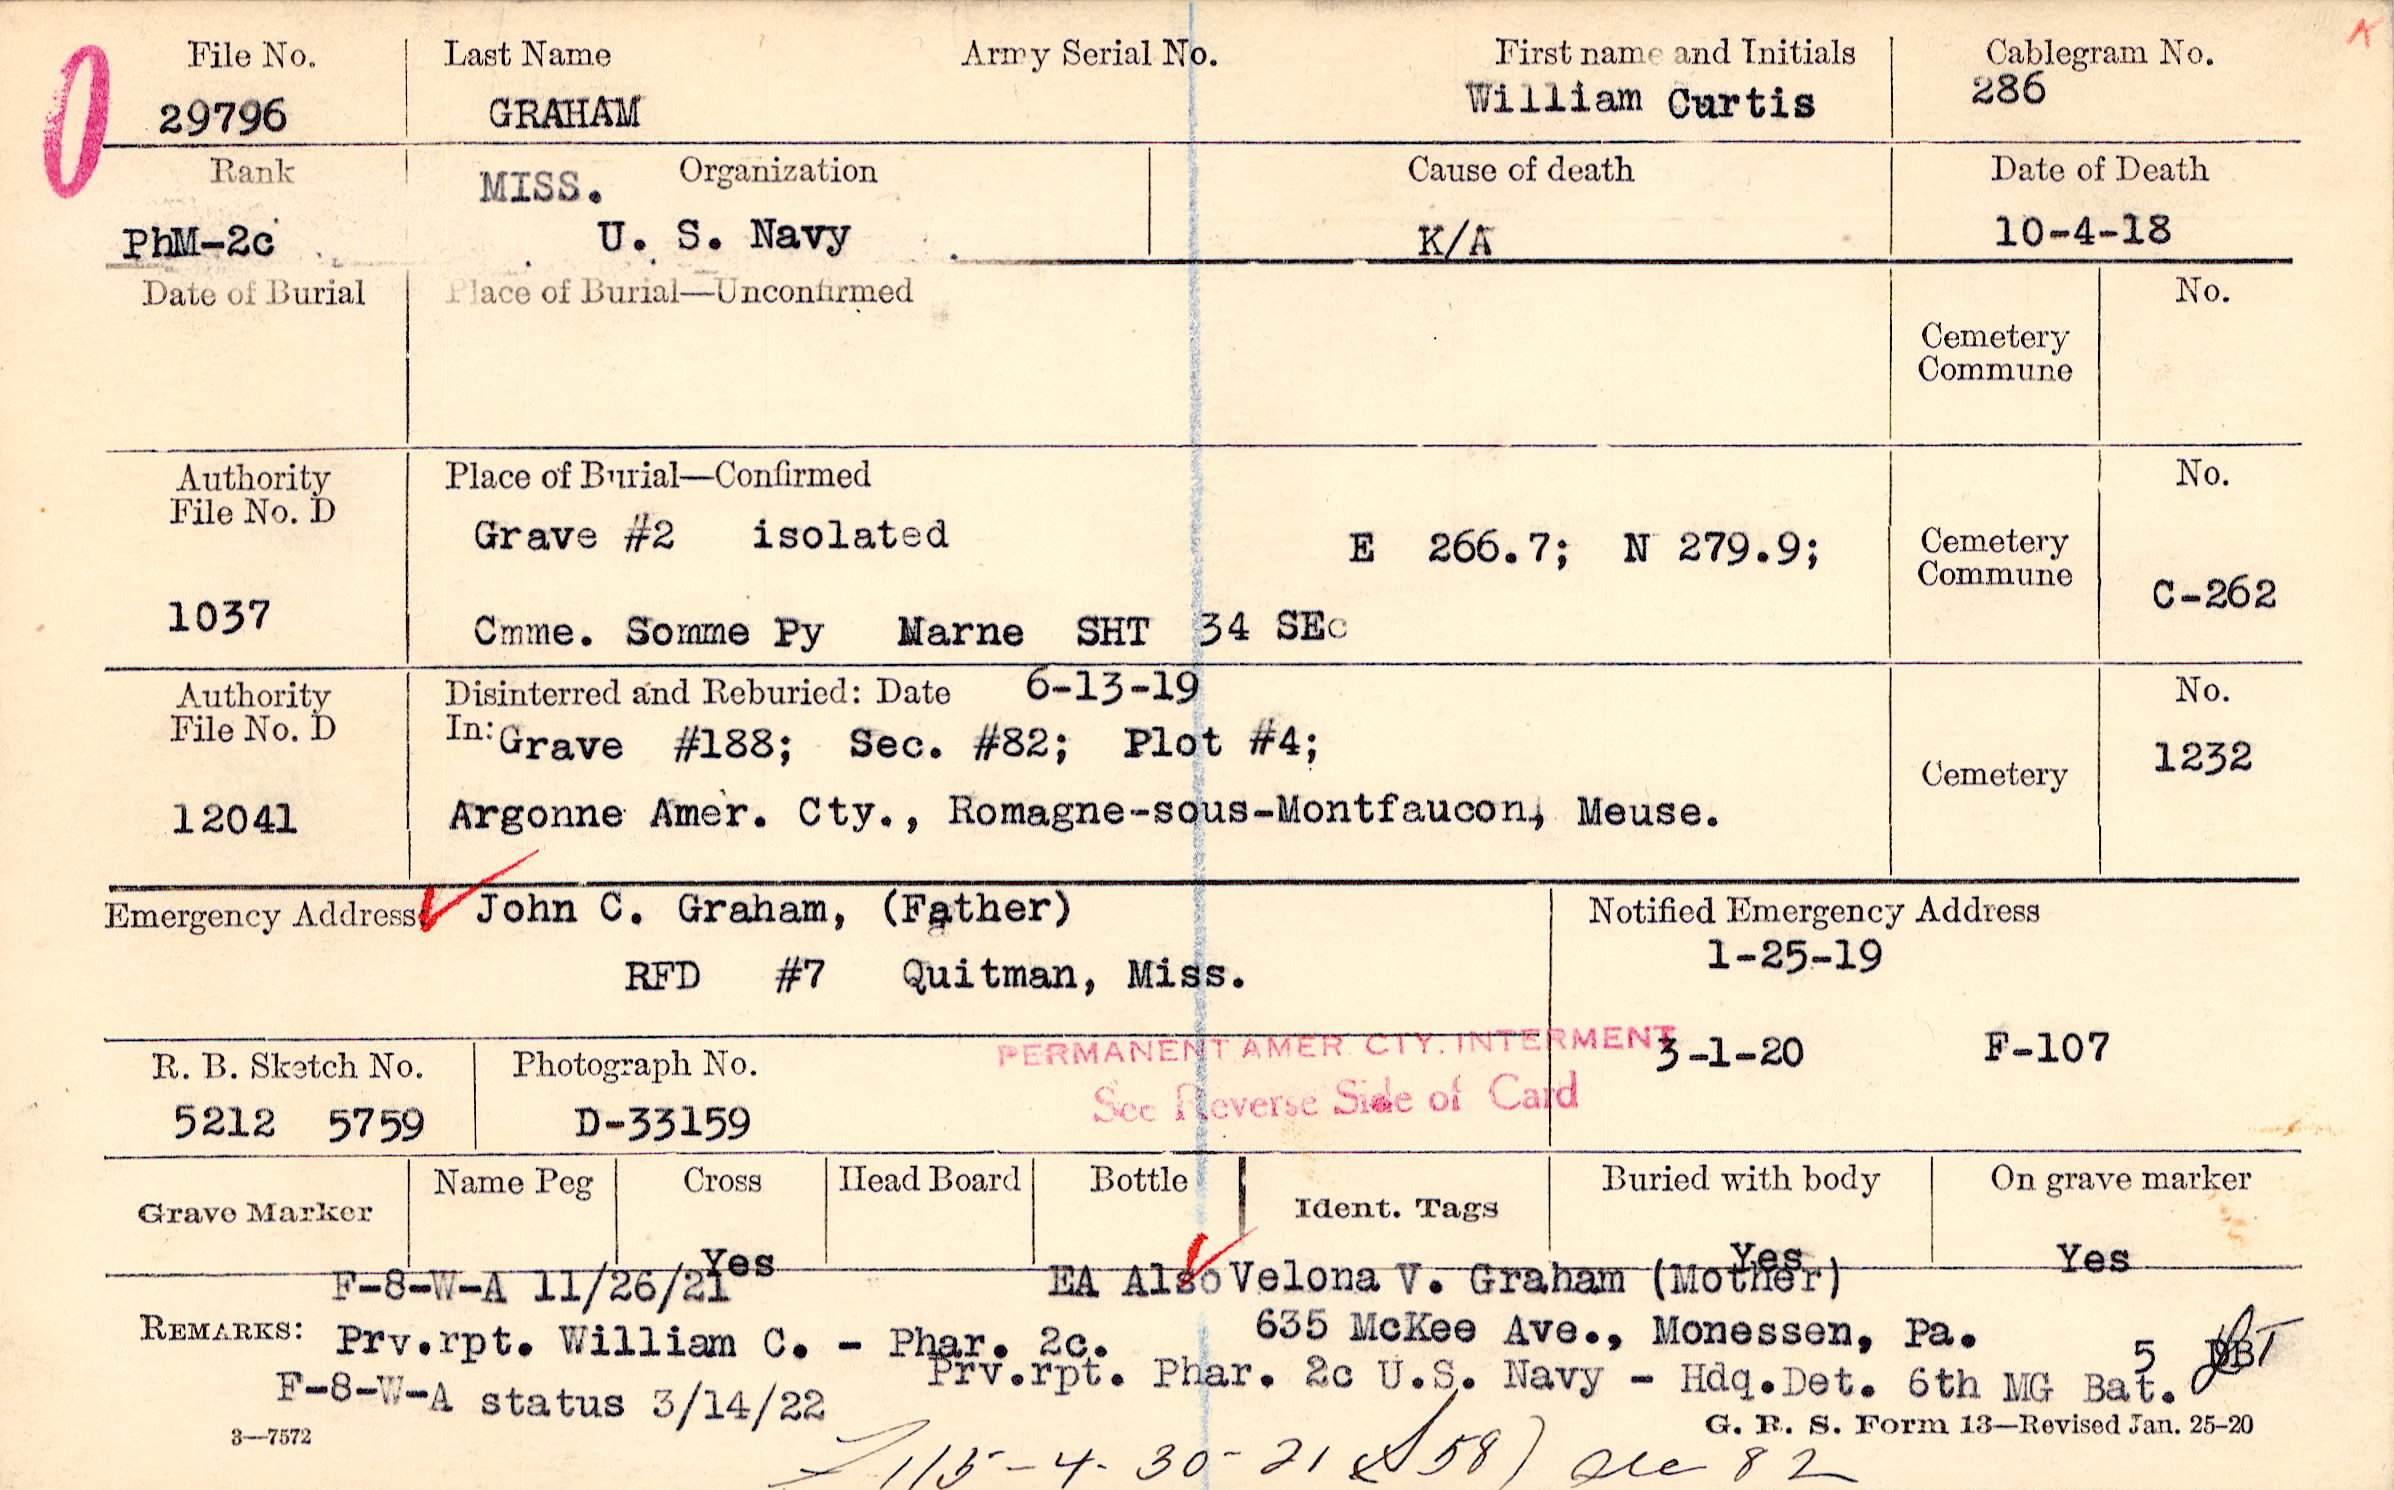 File No. Last Name Army Serial No. First name and Initials Cablegram No.
29796 GRAHAM William Curtis 286
Rank MISS. Organization Cause of death Date of Death
PhM-2c U. S. Navy K/A 10-4-18
Date of Burial Place of Burial—Unconfirmed No.
Cemetery
Commune
Authority Place of Burial—Confirmed No.
File No. D
Grave #2 isolated E 266.7; N 279.9; Cemetery
Commune
1037 Cmme. Somme Py Marne SHT 34 SEc C-262
Authority Disinterred and Reburied: Date 6-13-19 No.
File No. D In: Grave #188; Sec. #82; Plot #4; 1232
Cemetery
12041 Argonne Amer. Cty., Romagne-sous-Montfaucon, Meuse.
Emergency Address John C. Graham, (Father) Notified Emergency Address
RFD #7 Quitman, Miss. 1-25-19
PERMANENT AMER CTY. INTERMENT 3-1-20 F-107
R. B. Sketch No. Photograph No. See Reverse Side of Card
5212 5759 D-33159
Grave Marker Name Peg Cross Head Board Bottle Ident. Tags Buried with body On grave marker
Yes Yes Yes
F-8-W-A 11/26/21 EA Also Velona V. Graham (Mother)
635 McKee Ave., Monessen, Pa.
REMARKS: Prv.rpt. William C. - Phar. 2c.
Prv.rpt. Phar. 2c U.S. Navy - Hdq.Det. 6th MG Bat. 5
F-8-W-A status 3/14/22
3—7572 G. R. S. Form 13—Revised Jan. 25-20
115-4-30-21 58) 82